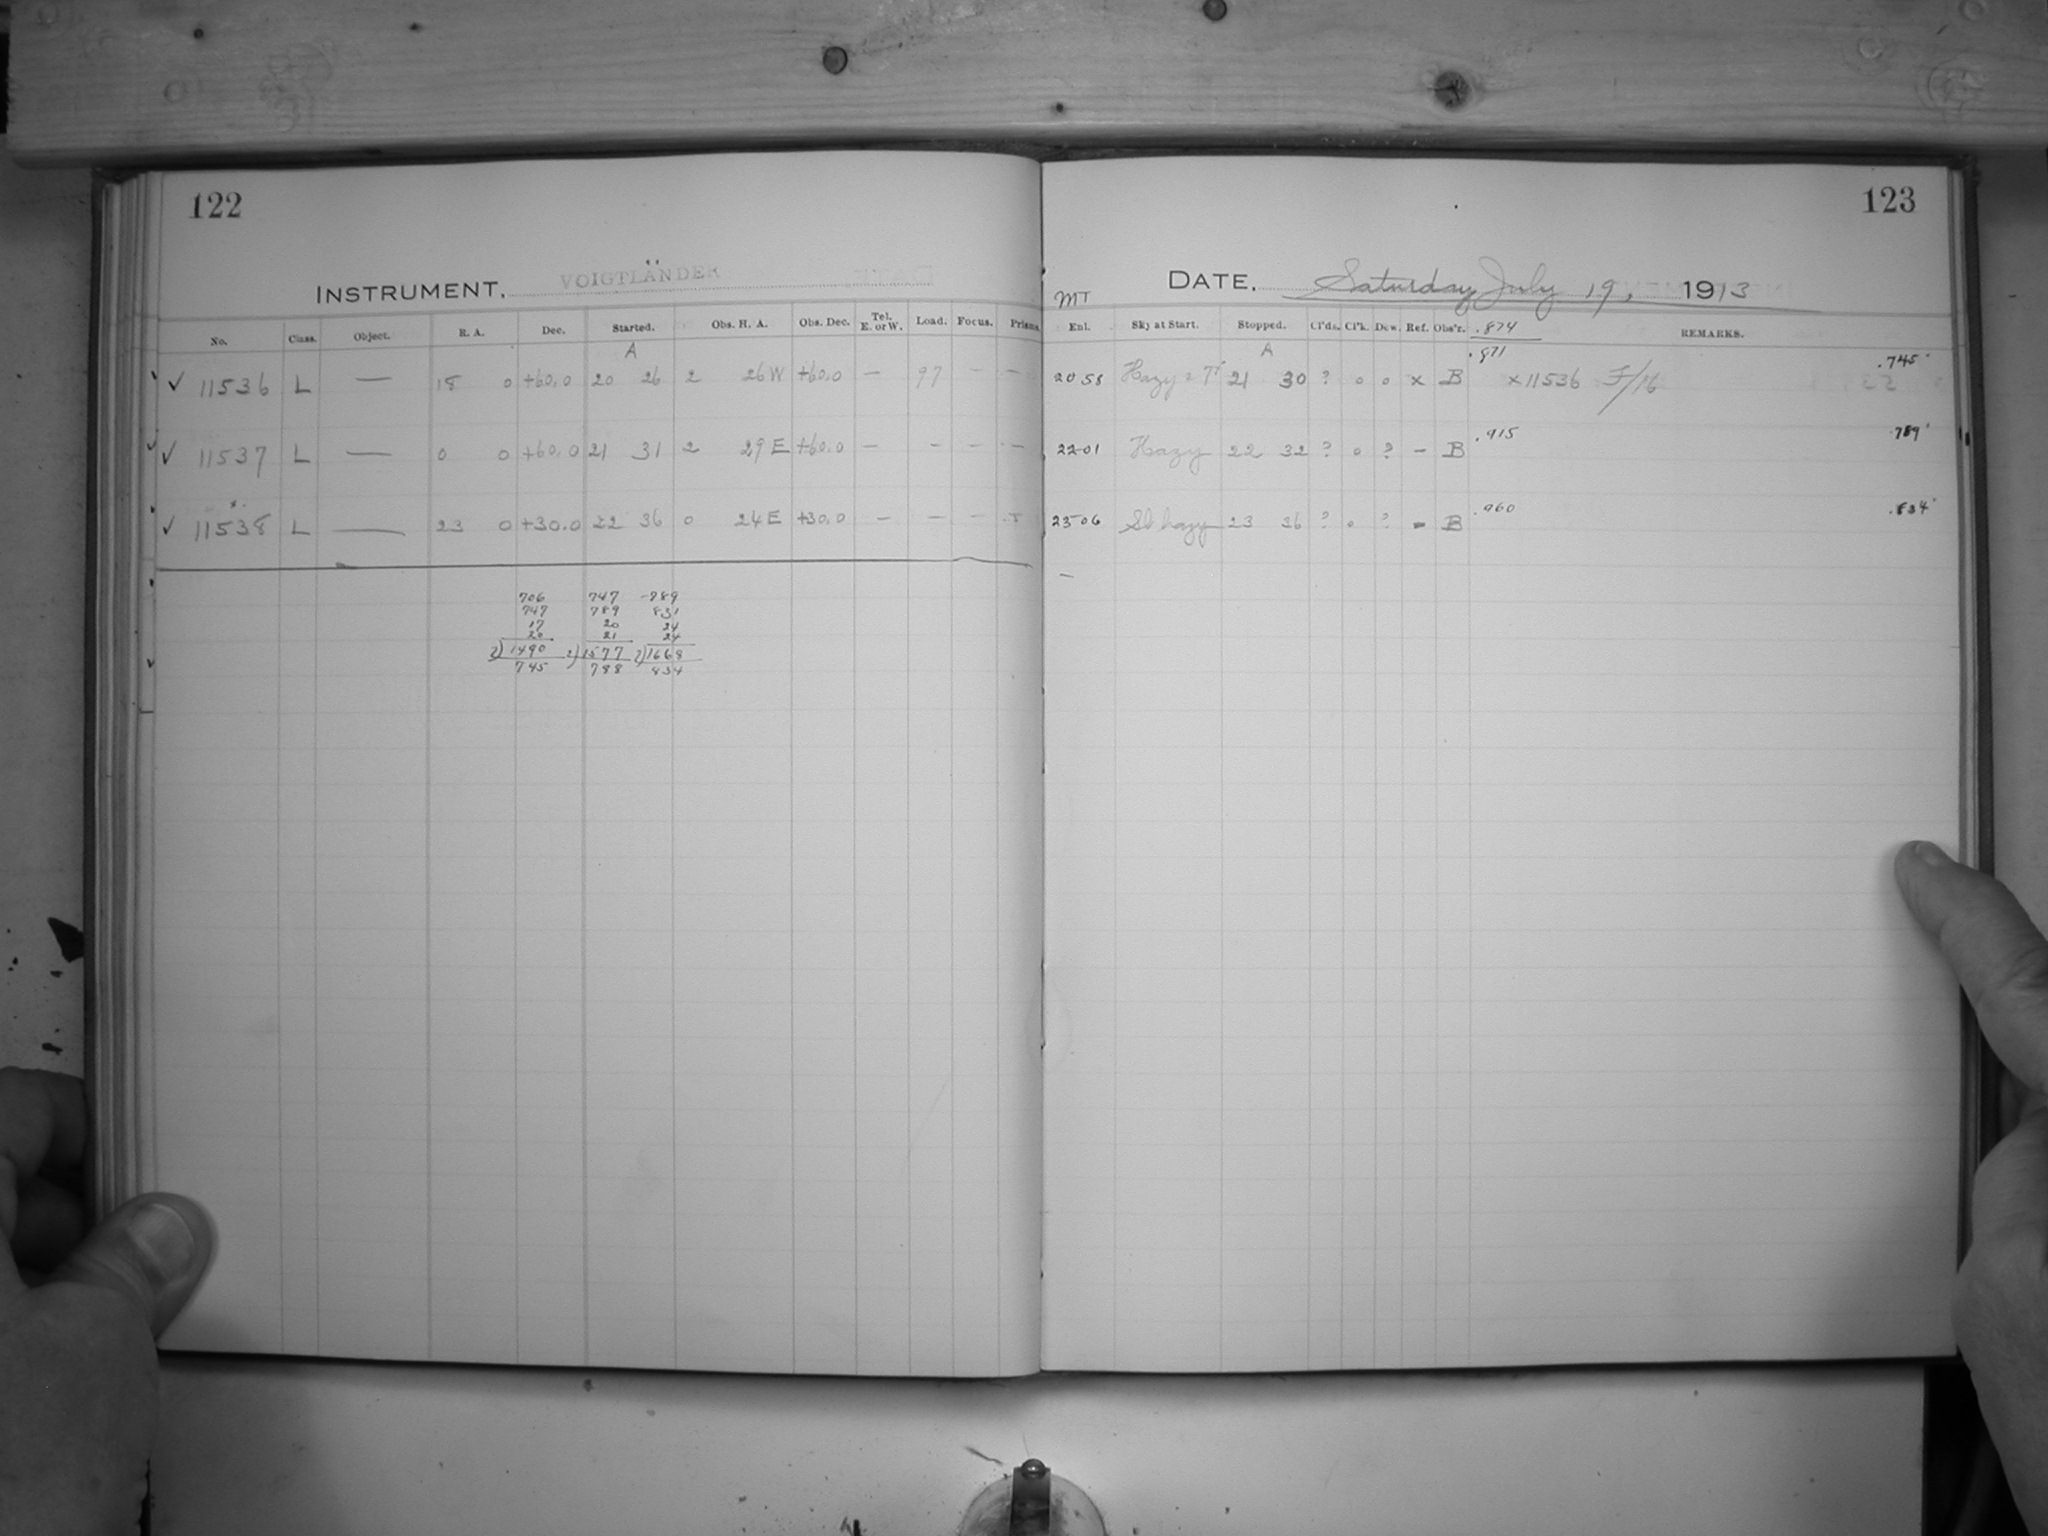 122
INSTRUMENT. VOIGTLÄNDER
No. Class. Object. R. A. Dec. Started. Obs. H. A. Obs. Dec. Tel. E. or W. Load. Focus. Prisms.
A
✓ 11536 L — 18 0 +60.0 20 26 2 26 W +60.0 — 97 — —
✓ 11537 L — 0 0 +60.0 21 31 2 29 E +60.0 — — — —
✓ 11538 L — 23 0 +30.0 22 36 0 24 E +30.0 — — —
706 747 789
747 789 831
17 20 24
20 21 24
2)1490 2)1577 2)1668
745 788 834
123
DATE. Saturday July 19, 1913
MT
Enl. Sky at Start. Stopped. Cl'ds. Cl'k. Dew. Ref. Obs'r. .874 REMARKS.
A
20 58 Hazy 21 30 ? 0 0 x B .871 x 11536 F/16 .745
22 01 Hazy 22 32 ? 0 ? – B .915 .789
23 06 Sl hazy 23 36 ? 0 ? – B .960 .834